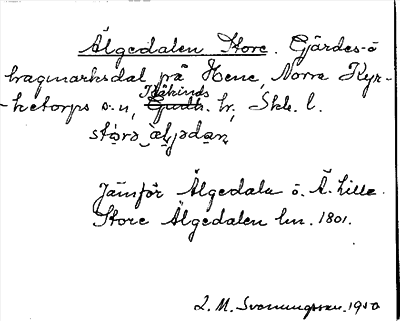 Älgedalen Store. Gärdes- o
hagmarksdal på Hene, Norra Kyr-
-ketorps s:n, Kåkinds hr, Skb. l.
stōrə ä̀ljədạn

Jämför Älgedala o. Ä. Lille.
Store Älgedalen lm. 1801.

L. M. Svenungsson. 1950